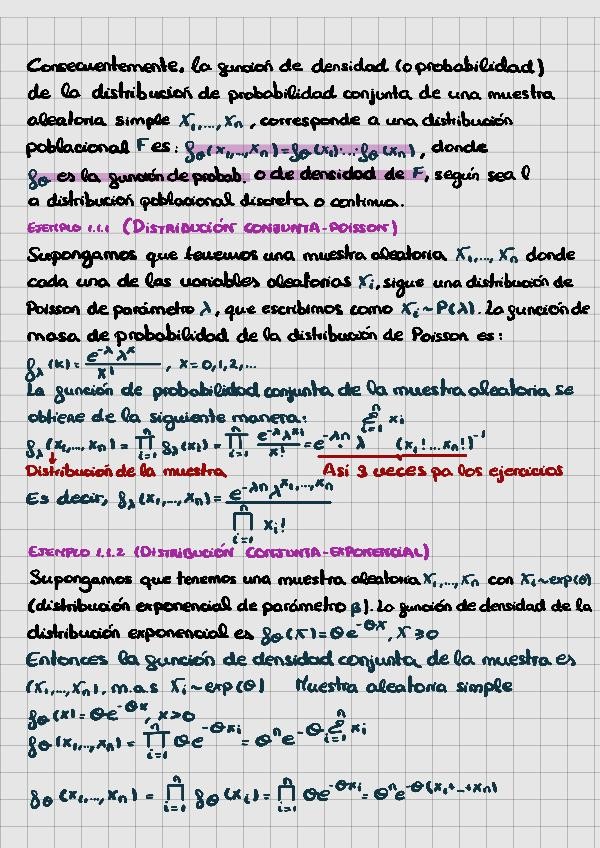 Consecuentemente, la función de densidad (o probabilidad)
de la distribución de probabilidad conjunta de una muestra
aleatoria simple X₁,...,Xₙ, corresponde a una distribución
poblacional F es: f_θ(x₁,...,xₙ)=f_θ(x₁)·...·f_θ(xₙ), donde
f_θ es la función de probab. o de densidad de F, según sea l
a distribución poblacional discreta o continua.
EJEMPLO 1.1.1 (DISTRIBUCIÓN CONJUNTA-POISSON)
Supongamos que tenemos una muestra aleatoria X₁,...,Xₙ donde
cada una de las variables aleatorias Xᵢ, sigue una distribución de
Poisson de parámetro λ, que escribimos como Xᵢ~P(λ). La función de
masa de probabilidad de la distribución de Poisson es:
f_λ(x) = e^{-λ} λ^x / x!, x=0,1,2,...
La función de probabilidad conjunta de la muestra aleatoria se
obtiene de la siguiente manera:
f_λ(x₁,...,xₙ) = ∏_{i=1}^{n} f_λ(xᵢ) = ∏_{i=1}^{n} e^{-λ} λ^{xᵢ} / x! = e^{-λn} · λ^{∑_{i=1}^{n} xᵢ} (x₁!...xₙ!)^{-1}
Distribución de la muestra Así 3 veces pa los ejercicios
Es decir, f_λ(x₁,...,xₙ) = e^{-λn} λ^{x₁,...,xₙ} / ∏_{i=1}^{n} xᵢ!
EJEMPLO 1.1.2 (DISTRIBUCIÓN CONJUNTA-EXPONENCIAL)
Supongamos que tenemos una muestra aleatoria X₁,...,Xₙ con Xᵢ~exp(θ)
(distribución exponencial de parámetro β). La función de densidad de la
distribución exponencial es f_θ(x)=θe^{-θx}, x≥0
Entonces la función de densidad conjunta de la muestra es
(X₁,...,Xₙ), m.a.s Xᵢ~exp(θ) Muestra aleatoria simple
f_θ(x)=θe^{-θx}, x>0
f_θ(x₁,...,xₙ) = ∏_{i=1}^{n} θe^{-θxᵢ} = θⁿ e^{-θ ∑_{i=1}^{n} xᵢ}
f_θ(x₁,...,xₙ) = ∏_{i=1}^{n} f_θ(xᵢ) = ∏_{i=1}^{n} θe^{-θxᵢ} = θⁿ e^{-θ(x₁+...+xₙ)}